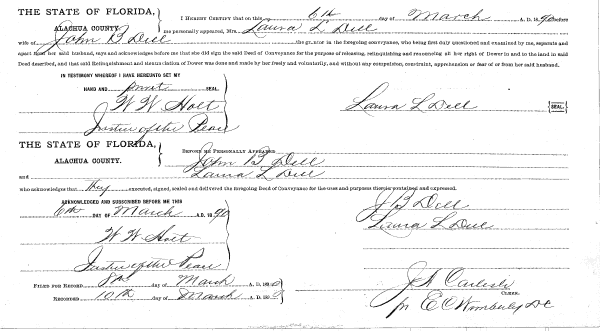 THE STATE OF FLORIDA,
ALACHUA COUNTY.
I HEREBY CERTIFY that on this 6th day of March A. D. 1890 before
me personally appeared, Mrs. Laura L Dell
wife of John B Dell the grantor in the foregoing conveyance, who being first duly questioned and examined by me, separate and
apart from her said husband, says and acknowledges before me that she did sign the said Deed of Conveyance for the purpose of releasing, relinquishing and renouncing all her right of Dower in and to the land in said
Deed described, and that said Relinquishment and Renunciation of Dower was done and made by her freely and voluntarily, and without any compulsion, constraint, apprehension or fear of or from her said husband.
IN TESTIMONY WHEREOF I HAVE HEREUNTO SET MY
HAND AND SEAL.
W W Holt
Justice of the Peace
Laura L Dell SEAL.
THE STATE OF FLORIDA,
ALACHUA COUNTY.
BEFORE ME PERSONALLY APPEARED John B Dell
and Laura L Dell
who acknowledges that they executed, signed, sealed and delivered the foregoing Deed of Conveyance for the uses and purposes therein contained and expressed.
ACKNOWLEDGED AND SUBSCRIBED BEFORE ME THIS
6th DAY OF March A.D. 1890
W W Holt
Justice of the Peace
J B Dell
Laura L Dell
FILED FOR RECORD 8th day of March A. D. 1890
RECORDED 10th day of March A. D. 1890
J A Carlisle
CLERK.
pr E C Wimberly D C